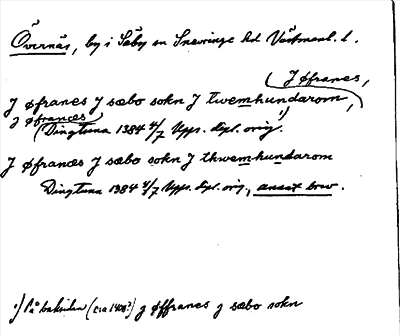 Övernäs, by i Säby sn Snevringe hd Västmanl. l.
J øfranes,
J øfranes J sæbo sokn J twemhundarom,
J øfrances
(Dingtuna 1384 4/7 Upps. dpl. orig. 1)
J øfrances J sæbo sokn J thwemhundarom
Dingtuna 1384 4/7 Upps. dpl. orig., annat brev.
1) På baksidan (ca 1400?) J øffranes J sæbo sokn